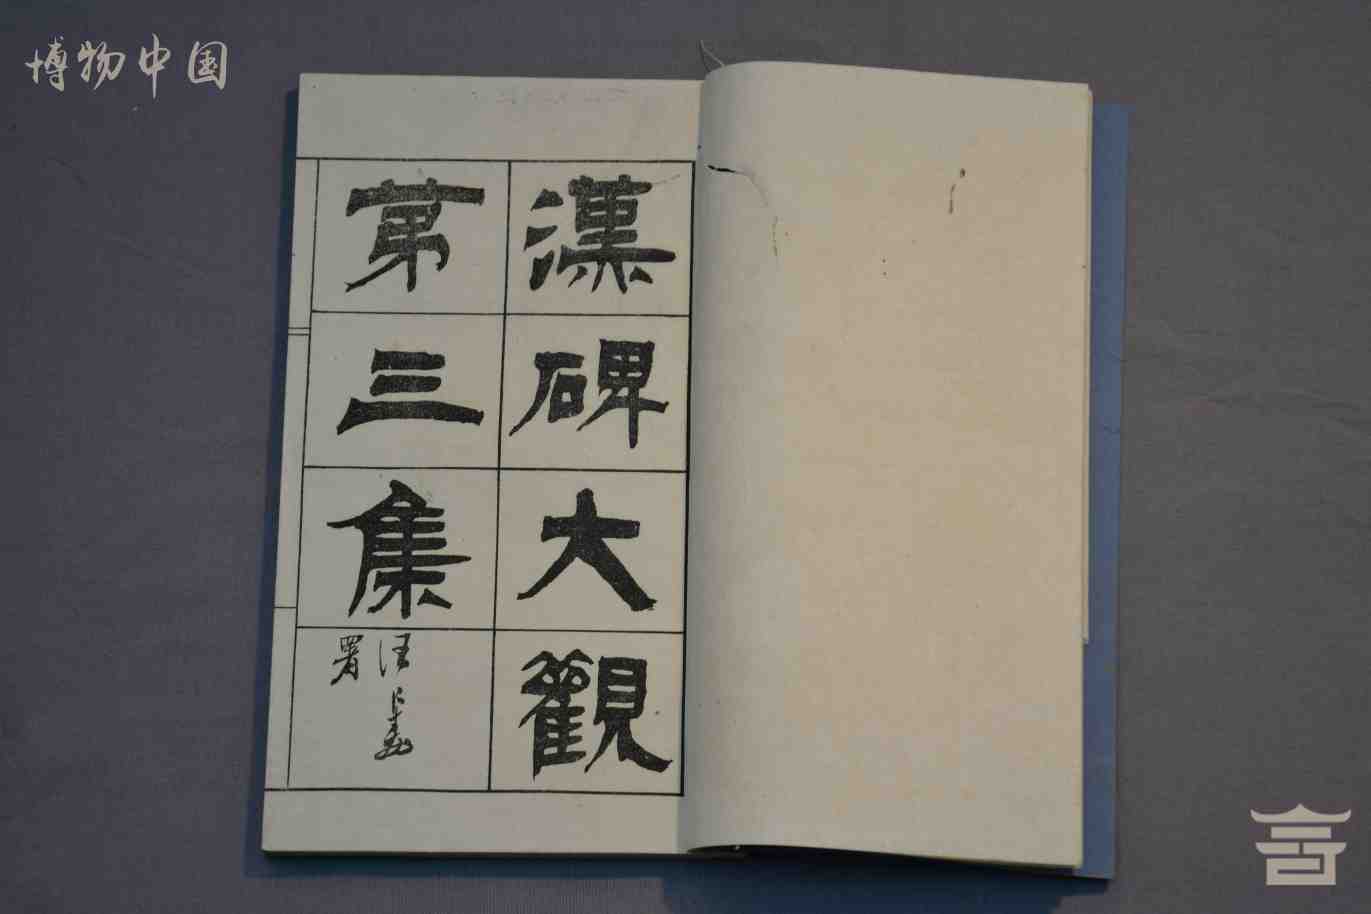 博物中国
漢碑大觀
第三集
署